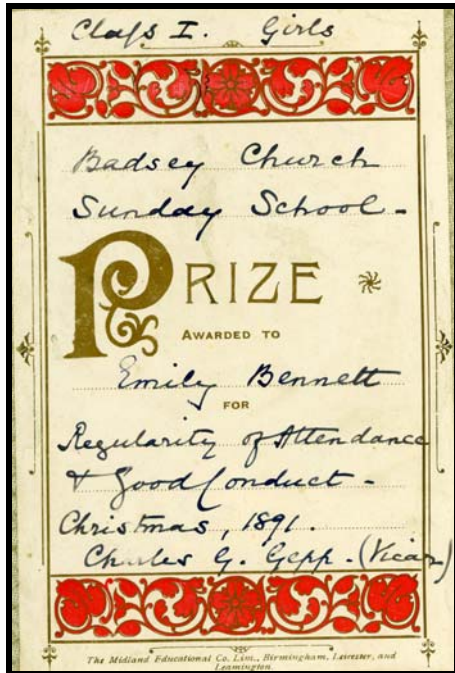 Class I. Girls
Badsey Church
Sunday School -
PRIZE
AWARDED TO
Emily Bennett
FOR
Regularity of Attendance
& Good Conduct -
Christmas, 1891.
Charles G. Gepp - (Vicar)
The Midland Educational Co. Lim., Birmingham, Leicester, and
Leamington.